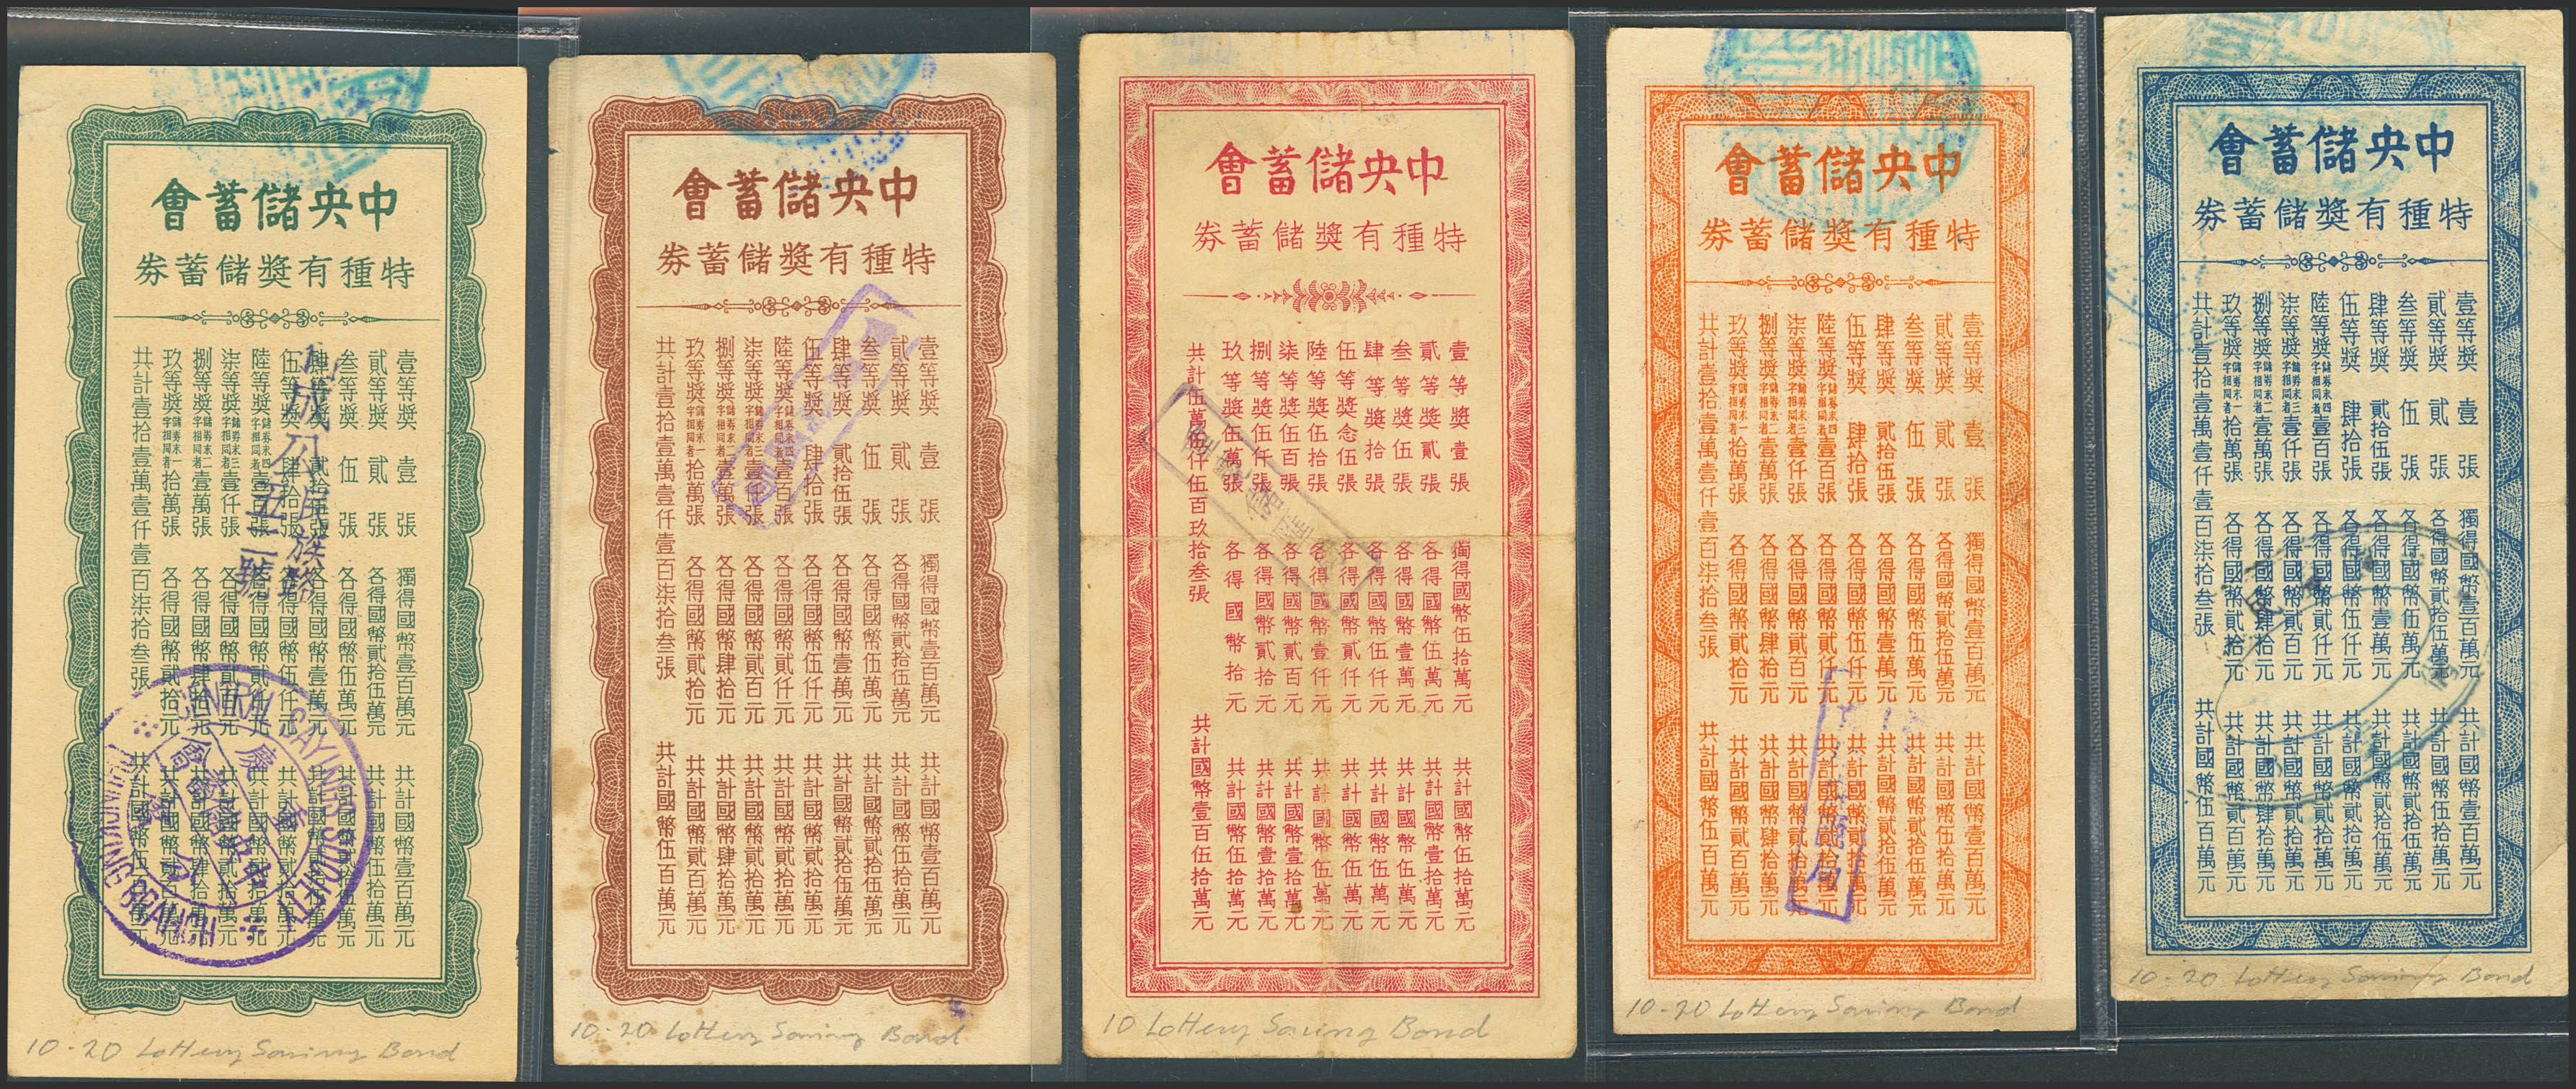 中央儲蓄會
特種有獎儲蓄券
壹等獎 壹張 獨得國幣壹百萬元 共計國幣壹百萬元
貳等獎 貳張 各得國幣貳拾伍萬元 共計國幣伍拾萬元
叁等獎 伍張 各得國幣伍萬元 共計國幣貳拾伍萬元
肆等獎 貳拾伍張 各得國幣壹萬元 共計國幣貳拾伍萬元
伍等獎 肆拾張 各得國幣伍仟元 共計國幣貳拾萬元
陸等獎 儲券末四字相同者 壹百張 各得國幣貳仟元 共計國幣貳拾萬元
柒等獎 儲券末三字相同者 壹仟張 各得國幣貳百元 共計國幣貳拾萬元
捌等獎 儲券末二字相同者 壹萬張 各得國幣肆拾元 共計國幣肆拾萬元
玖等獎 儲券末一字相同者 拾萬張 各得國幣貳拾元 共計國幣貳百萬元
共計壹拾壹萬壹仟壹百柒拾叁張 共計國幣伍百萬元
成公庄族路
五二號
CENTRAL SAVINGS SOCIETY
CHUNGKING BRANCH
10-20 Lottery Saving Bond
中央儲蓄會
特種有獎儲蓄券
壹等獎 壹張 獨得國幣壹百萬元 共計國幣壹百萬元
貳等獎 貳張 各得國幣貳拾伍萬元 共計國幣伍拾萬元
叁等獎 伍張 各得國幣伍萬元 共計國幣貳拾伍萬元
肆等獎 貳拾伍張 各得國幣壹萬元 共計國幣貳拾伍萬元
伍等獎 肆拾張 各得國幣伍仟元 共計國幣貳拾萬元
陸等獎 儲券末四字相同者 壹百張 各得國幣貳仟元 共計國幣貳拾萬元
柒等獎 儲券末三字相同者 壹仟張 各得國幣貳百元 共計國幣貳拾萬元
捌等獎 儲券末二字相同者 壹萬張 各得國幣肆拾元 共計國幣肆拾萬元
玖等獎 儲券末一字相同者 拾萬張 各得國幣貳拾元 共計國幣貳百萬元
共計壹拾壹萬壹仟壹百柒拾叁張 共計國幣伍百萬元
10-20 Lottery Saving Bond
中央儲蓄會
特種有獎儲蓄券
壹等獎壹張 獨得國幣伍拾萬元 共計國幣伍拾萬元
貳等獎貳張 各得國幣伍萬元 共計國幣壹拾萬元
叁等獎伍張 各得國幣壹萬元 共計國幣伍萬元
肆等獎拾張 各得國幣伍仟元 共計國幣伍萬元
伍等獎念伍張 各得國幣貳仟元 共計國幣伍萬元
陸等獎伍拾張 各得國幣壹仟元 共計國幣伍萬元
柒等獎伍百張 各得國幣貳百元 共計國幣壹拾萬元
捌等獎伍仟張 各得國幣貳拾元 共計國幣壹拾萬元
玖等獎伍萬張 各得國幣拾元 共計國幣伍拾萬元
共計伍萬伍仟伍百玖拾叁張 共計國幣壹百伍拾萬元
10 Lottery Saving Bond
中央儲蓄會
特種有獎儲蓄券
壹等獎 壹張 獨得國幣壹百萬元 共計國幣壹百萬元
貳等獎 貳張 各得國幣貳拾伍萬元 共計國幣伍拾萬元
叁等獎 伍張 各得國幣伍萬元 共計國幣貳拾伍萬元
肆等獎 貳拾伍張 各得國幣壹萬元 共計國幣貳拾伍萬元
伍等獎 肆拾張 各得國幣伍仟元 共計國幣貳拾萬元
陸等獎 儲券末四字相同者 壹百張 各得國幣貳仟元 共計國幣貳拾萬元
柒等獎 儲券末三字相同者 壹仟張 各得國幣貳百元 共計國幣貳拾萬元
捌等獎 儲券末二字相同者 壹萬張 各得國幣肆拾元 共計國幣肆拾萬元
玖等獎 儲券末一字相同者 拾萬張 各得國幣貳拾元 共計國幣貳百萬元
共計壹拾壹萬壹仟壹百柒拾叁張 共計國幣伍百萬元
10-20 Lottery Saving Bond
中央儲蓄會
特種有獎儲蓄券
壹等獎 壹張 獨得國幣壹百萬元 共計國幣壹百萬元
貳等獎 貳張 各得國幣貳拾伍萬元 共計國幣伍拾萬元
叁等獎 伍張 各得國幣伍萬元 共計國幣貳拾伍萬元
肆等獎 貳拾伍張 各得國幣壹萬元 共計國幣貳拾伍萬元
伍等獎 肆拾張 各得國幣伍仟元 共計國幣貳拾萬元
陸等獎 儲券末四字相同者 壹百張 各得國幣貳仟元 共計國幣貳拾萬元
柒等獎 儲券末三字相同者 壹仟張 各得國幣貳百元 共計國幣貳拾萬元
捌等獎 儲券末二字相同者 壹萬張 各得國幣肆拾元 共計國幣肆拾萬元
玖等獎 儲券末一字相同者 拾萬張 各得國幣貳拾元 共計國幣貳百萬元
共計壹拾壹萬壹仟壹百柒拾叁張 共計國幣伍百萬元
10-20 Lottery Saving Bond